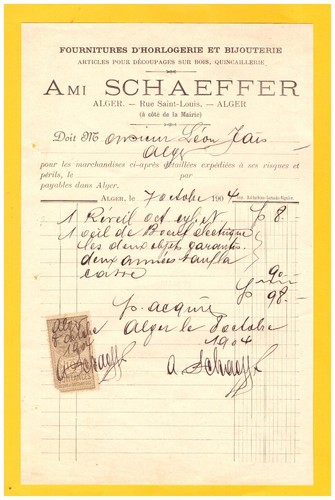 FOURNITURES D'HORLOGERIE ET BIJOUTERIE
ARTICLES POUR DÉCOUPAGES SUR BOIS, QUINCAILLERIE
AMI SCHAEFFER
ALGER. — Rue Saint-Louis. — ALGER
(à côté de la Mairie)
Doit M onsieur Léon
Alger
pour les marchandises ci-après détaillées expédiées à ses risques et
périls, le par
payables dans Alger.
ALGER, le 7 octobre 1904
1 Réveil oct f 8.—
1 œil de Bœuf électrique
les deux objets garantis
deux années sauf la
casse 90.—
f 98.—
p. acquit
Alger le 8 octobre
1904
A Schaeffer
Alger
8 octobre
1904
A Schaeffer
QUITTANCES